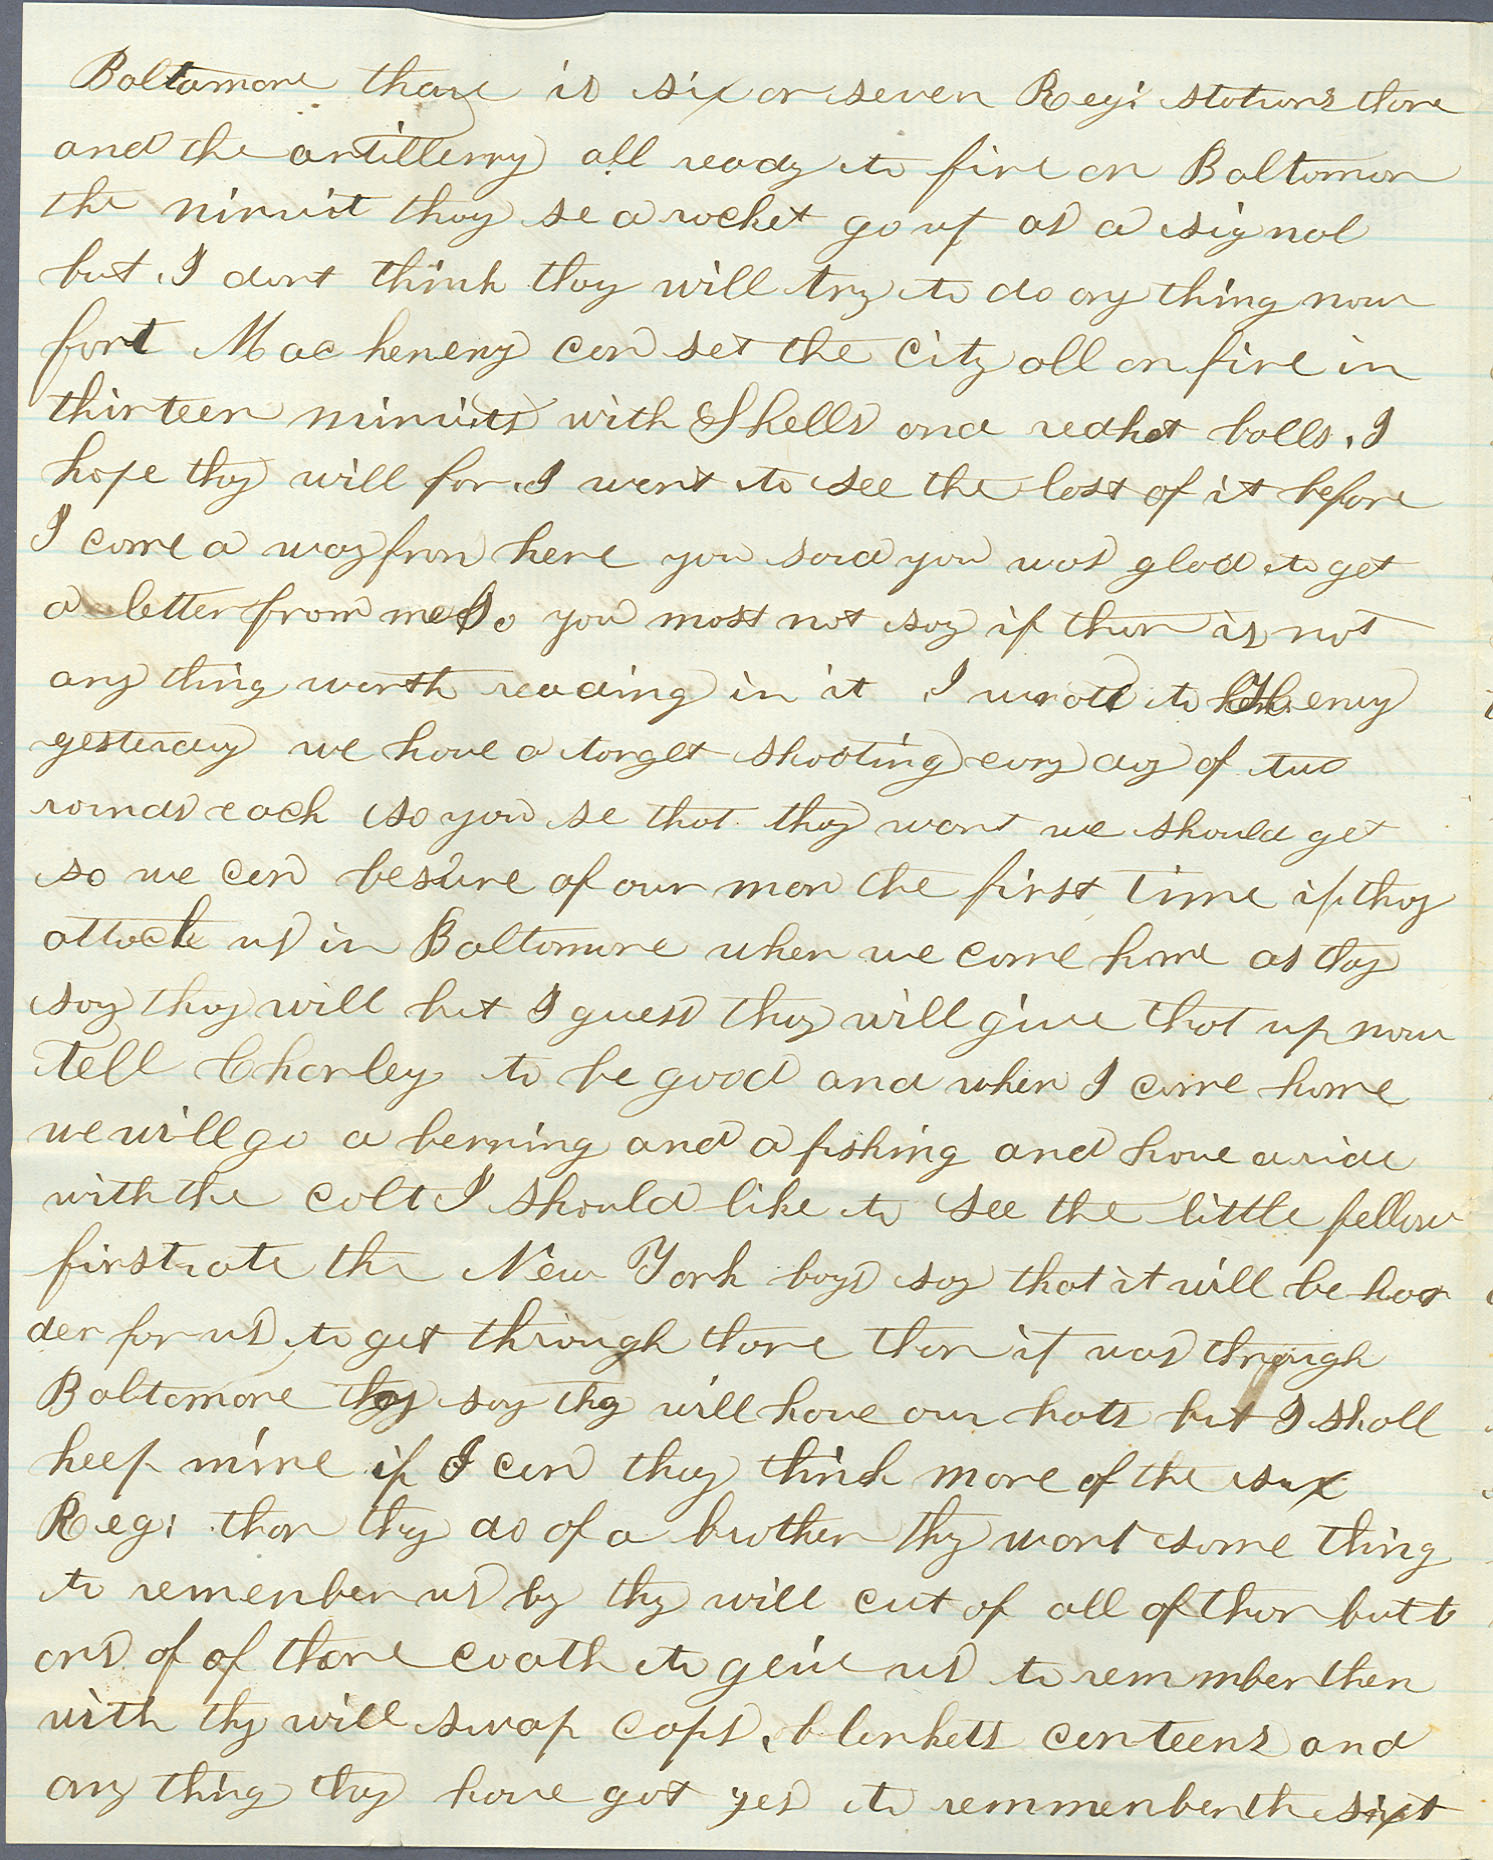 Baltamore thare is six or seven Regi stations thare
and the artillerry all ready to fire on Baltomor
the minuit thay se a rocket go up as a signal
but I dont think thay will try to do any thing now
fort Mac henery can set the city all on fire in
thirteen minuits with Shells and redhot balls. I
hope thay will for I want to see the last of it before
I come a way from here you said you was glad to get
a letter from me So you most not say if ther is not
any thing worth reading in it I wrote to Henry
yesterday we have a target shooting evry day of two
rounds each so you se that thay want we should get
so we can besure of our man the first time if thay
attack us in Baltomore when we come home as thay
say thay will but I guess thay will give that up now
Tell Charley to be good and when I come home
we will go a berring and a fishing and have a ride
with the colt I should like to see the little fellow
firstrate the New York boys say that it will be har
der for us to get through thare than it was through
Baltamore thay say thay will have our hats but I shall
keep mine if I can thay think more of the six
Regi than thay do of a brother thay want some thing
to remenber us by thay will cut of all of ther butt
ons of of thare coath to geive us to remmber then
with thay will swap caps, blankets canteens and
any thing thay have got yes to remmenber th sixt